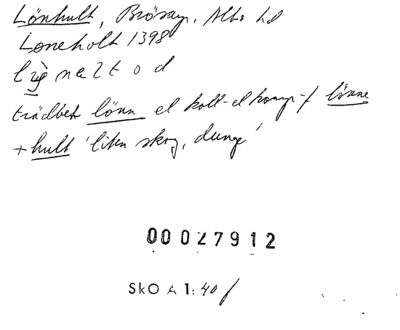 Lönhult, Brösarp, Albo hd
Loneholt 1398
trädbet lönn el koll- el komp-f lönne
+ hult 'liten skog, dunge'
00027912
SkO A 1:40 f